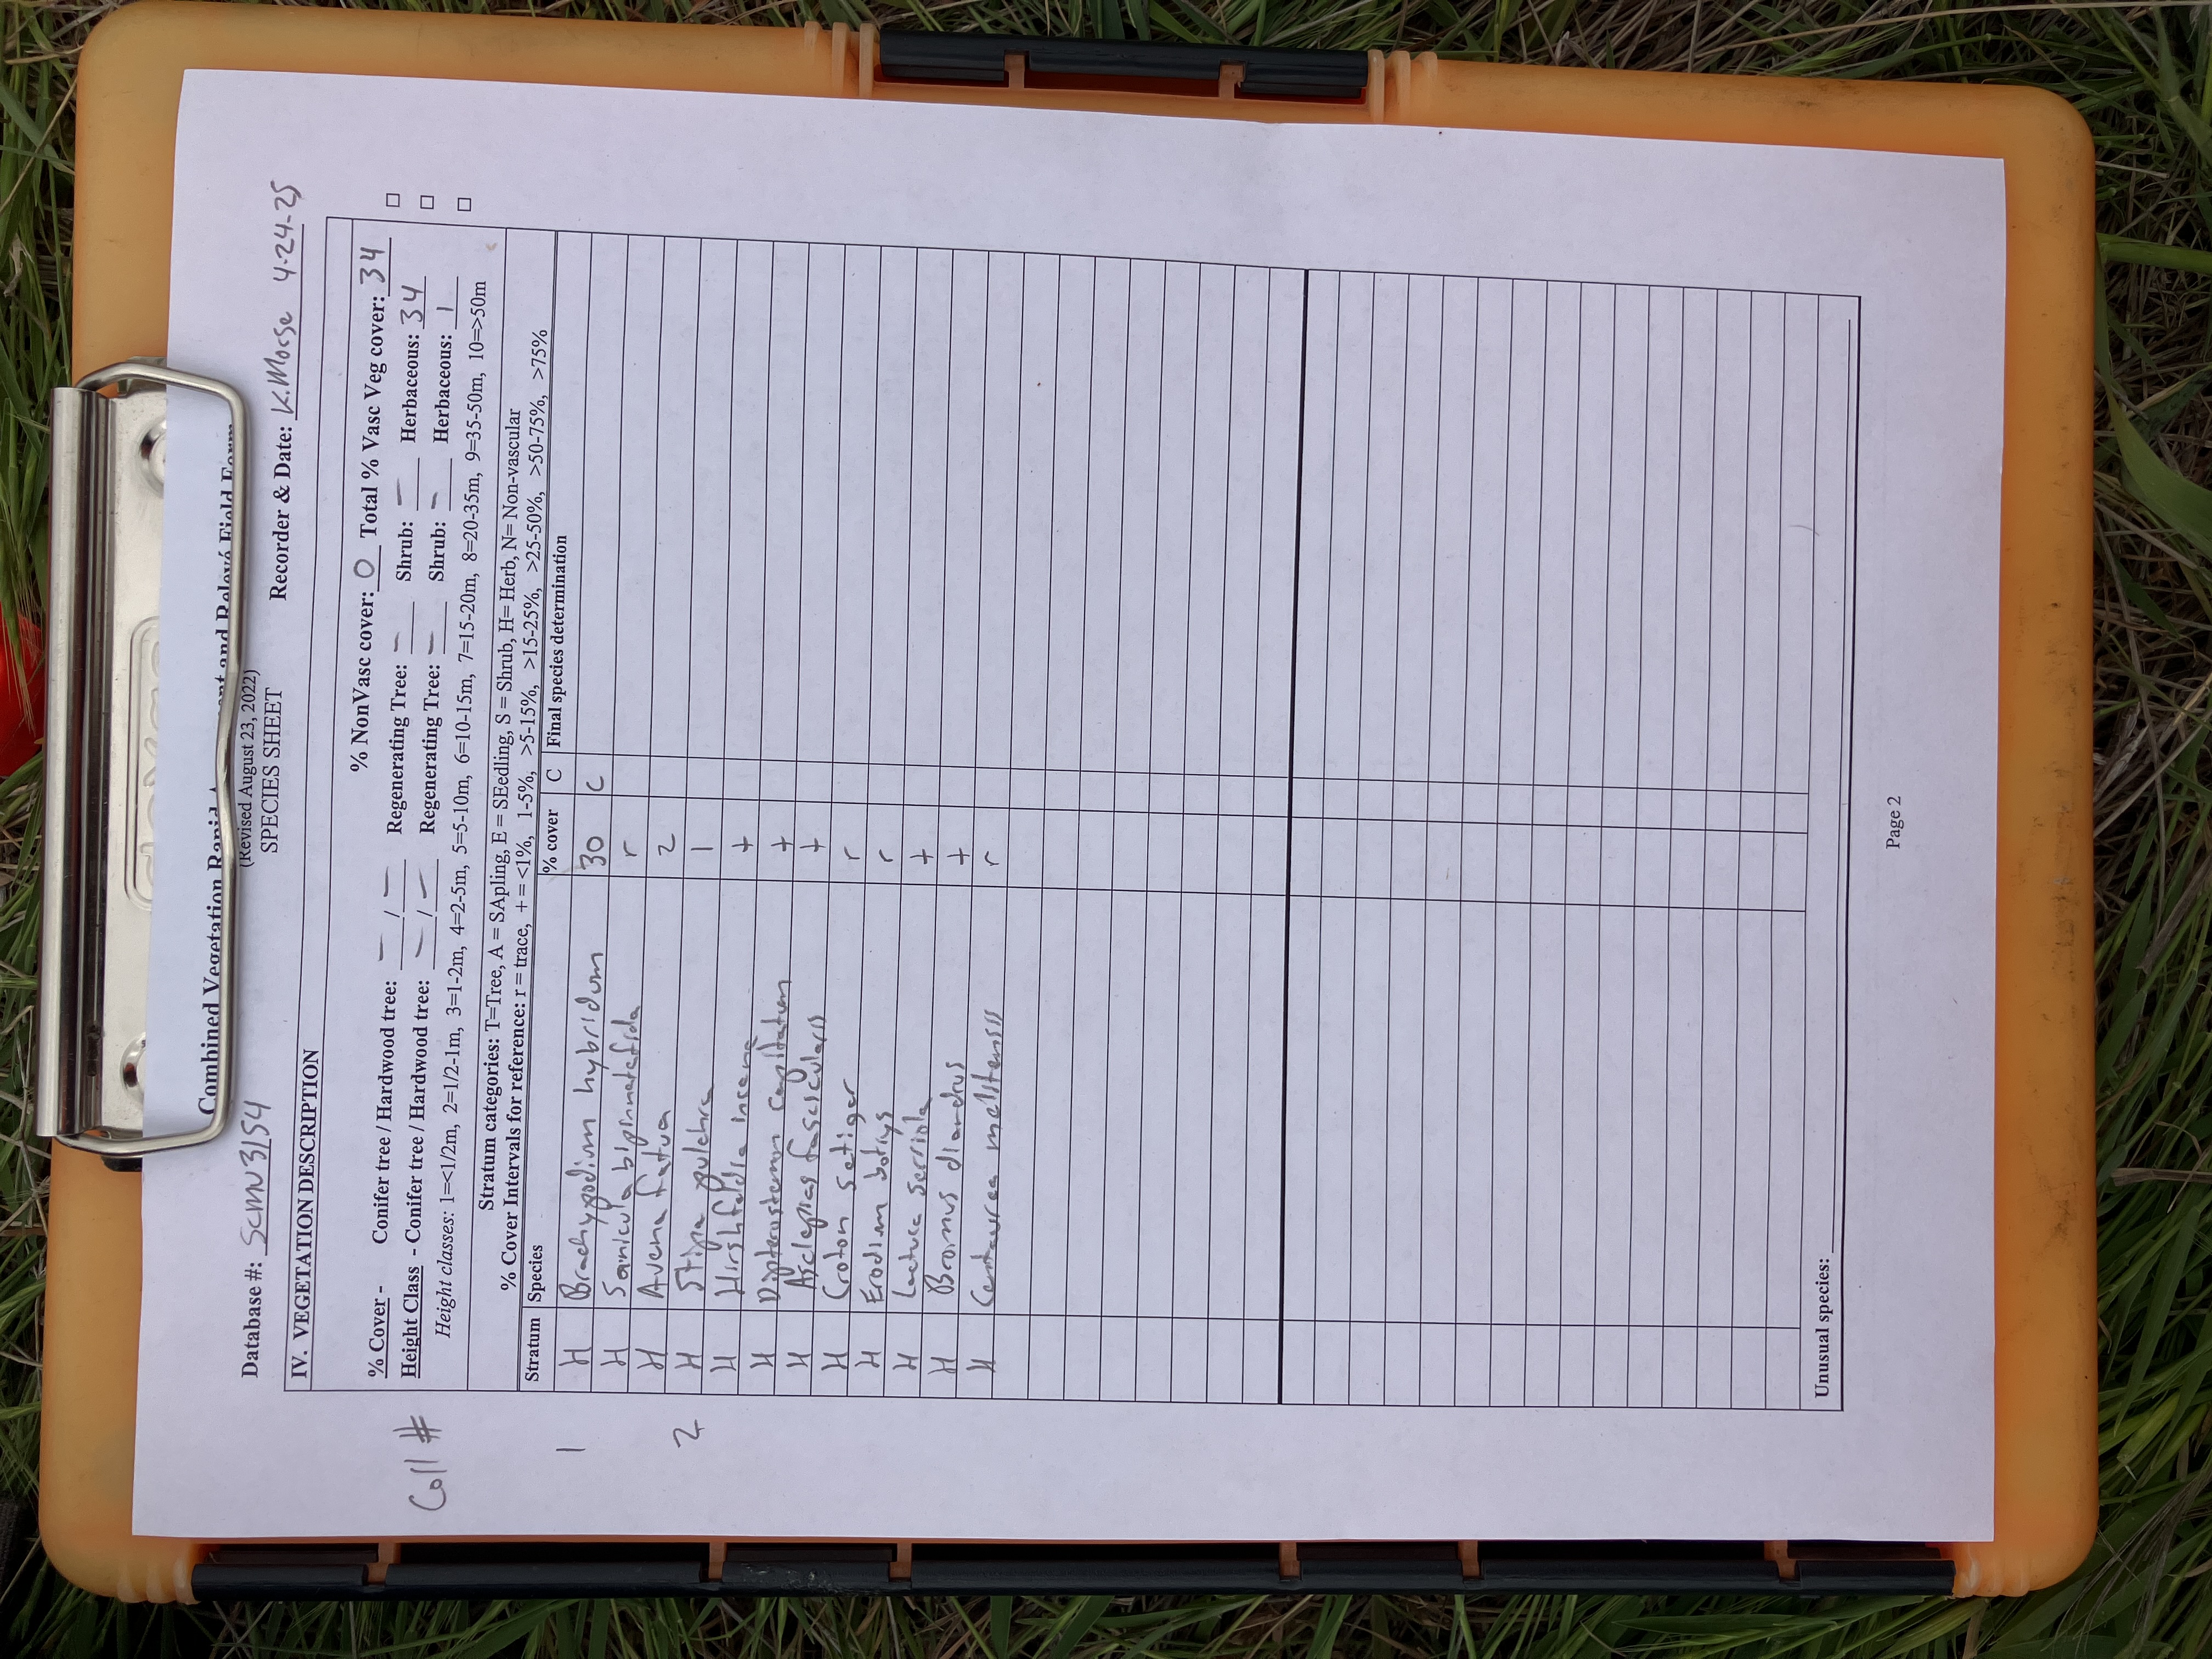 Combined Vegetation Rapid and Relevé Field Form
(Revised August 23, 2022)
SPECIES SHEET
Database #: SCMN3154 Recorder & Date: K.Morse 4-24-25
IV. VEGETATION DESCRIPTION
% NonVasc cover: 0 Total % Vasc Veg cover: 34
% Cover - Conifer tree / Hardwood tree: - / - Regenerating Tree: - Shrub: - Herbaceous: 34 □
Height Class - Conifer tree / Hardwood tree: - / - Regenerating Tree: - Shrub: - Herbaceous: 1 □
Height classes: 1=<1/2m, 2=1/2-1m, 3=1-2m, 4=2-5m, 5=5-10m, 6=10-15m, 7=15-20m, 8=20-35m, 9=35-50m, 10=>50m □
Coll #
Stratum categories: T=Tree, A = SApling, E = SEedling, S = Shrub, H= Herb, N= Non-vascular
% Cover Intervals for reference: r = trace, + = <1%, 1-5%, >5-15%, >15-25%, >25-50%, >50-75%, >75%
Stratum Species % cover C Final species determination
1 H Brachypodium hybridum 30 C
H Sanicula bipinnatifida r
H Avena fatua 2
2 H Stipa pulchra 1
H Hirshfeldia incana +
H Dipterostemon capitatum +
H Asclepias fascicularis +
H Croton setiger r
H Erodium botrys r
H Lactuca serriola +
H Bromus diandrus +
H Centaurea melitensis r
Unusual species:
Page 2